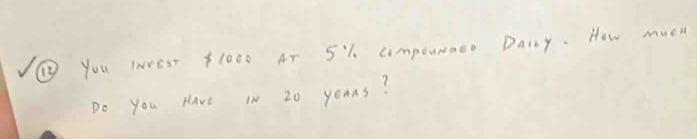 ✓⑫ You INVEST $1000 AT 5% COMPOUNDED DAILY. How MUCH
DO You HAVE IN 20 YEARS?